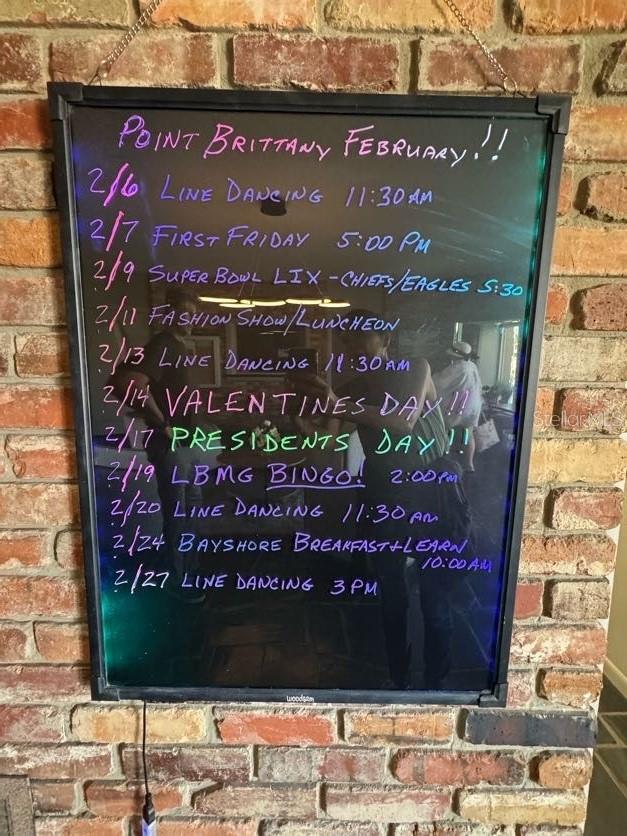 POINT BRITTANY FEBRUARY!!
2/6 LINE DANCING 11:30 AM
2/7 FIRST FRIDAY 5:00 PM
2/9 SUPER BOWL LIX - CHIEFS/EAGLES 5:30
2/11 FASHION SHOW/LUNCHEON
2/13 LINE DANCING 11:30 AM
2/14 VALENTINES DAY!!
2/17 PRESIDENTS DAY!!
2/19 LBMG BINGO! 2:00 PM
2/20 LINE DANCING 11:30 AM
2/24 BAYSHORE BREAKFAST+LEARN
10:00 AM
2/27 LINE DANCING 3 PM
woodsam